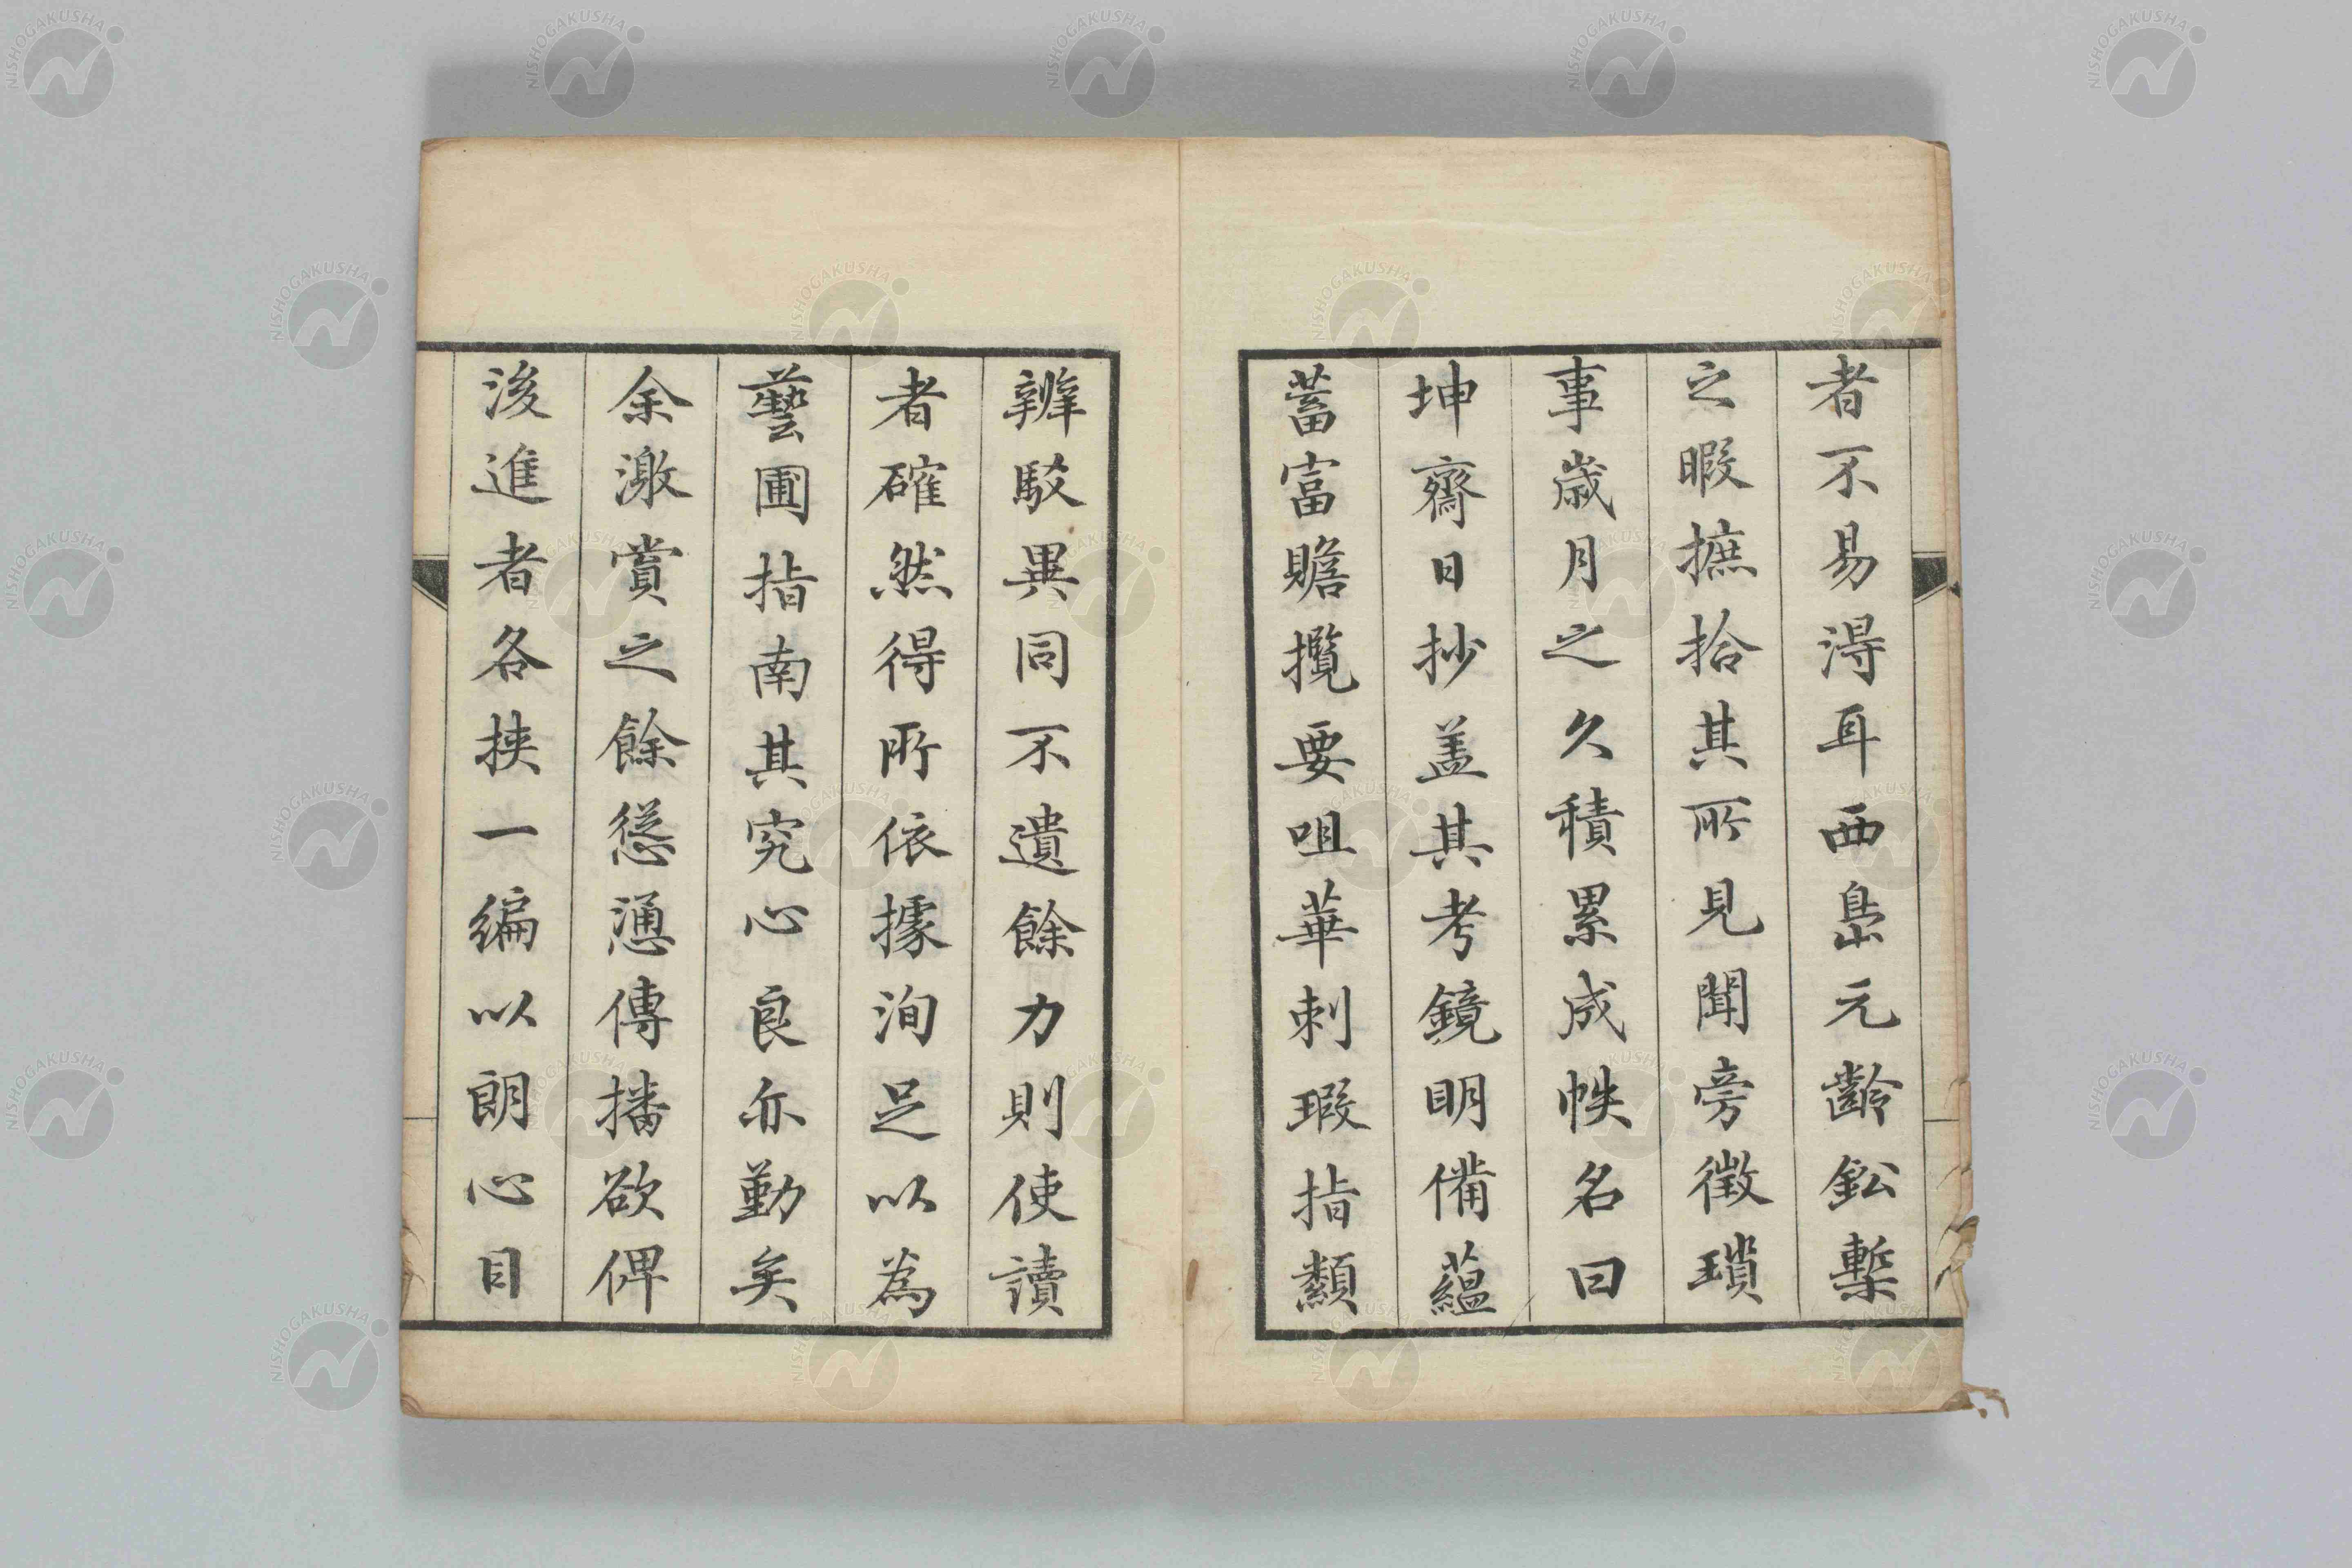 者不易淂耳西島元齡鈆槧
之暇摭拾其所見聞旁徵瑣
事歲月之久積累成帙名曰
坤齋日抄盖其考鏡明備蘊
蓄富贍攬要咀華刺瑕指纇
辨駁異同不遺餘力則使讀
者確然得所依據洵足以為
藝圃指南其究心良亦勤矣
余激賞之餘慫慂傳播欲俾
後進者各挾一編以朗心目
NISHOGAKUSHA